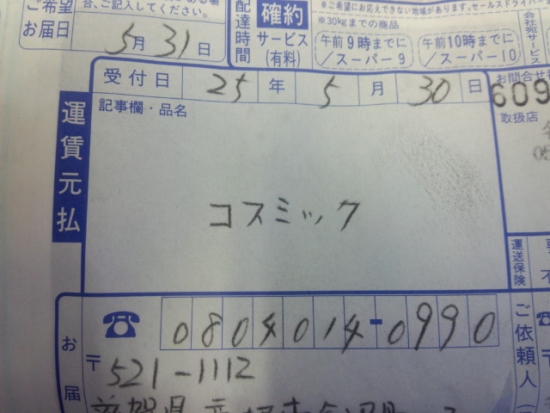 合、ご記入してください。
ご希望
お届日 5月31日
配達時間
確約
サービス
(有料)
※30kgまでの商品
午前9時までに
/スーパー9
※ご希望にお応えできない地域があります。セールスドライバー
午前10時までに
/スーパー10
受付日 25年5月30日
お問合せ
609
取扱店
記事欄・品名
運賃元払
コスミック
運送保険
お届
☎ 0804014-0990
〒521-1112
滋賀県
ご依頼人